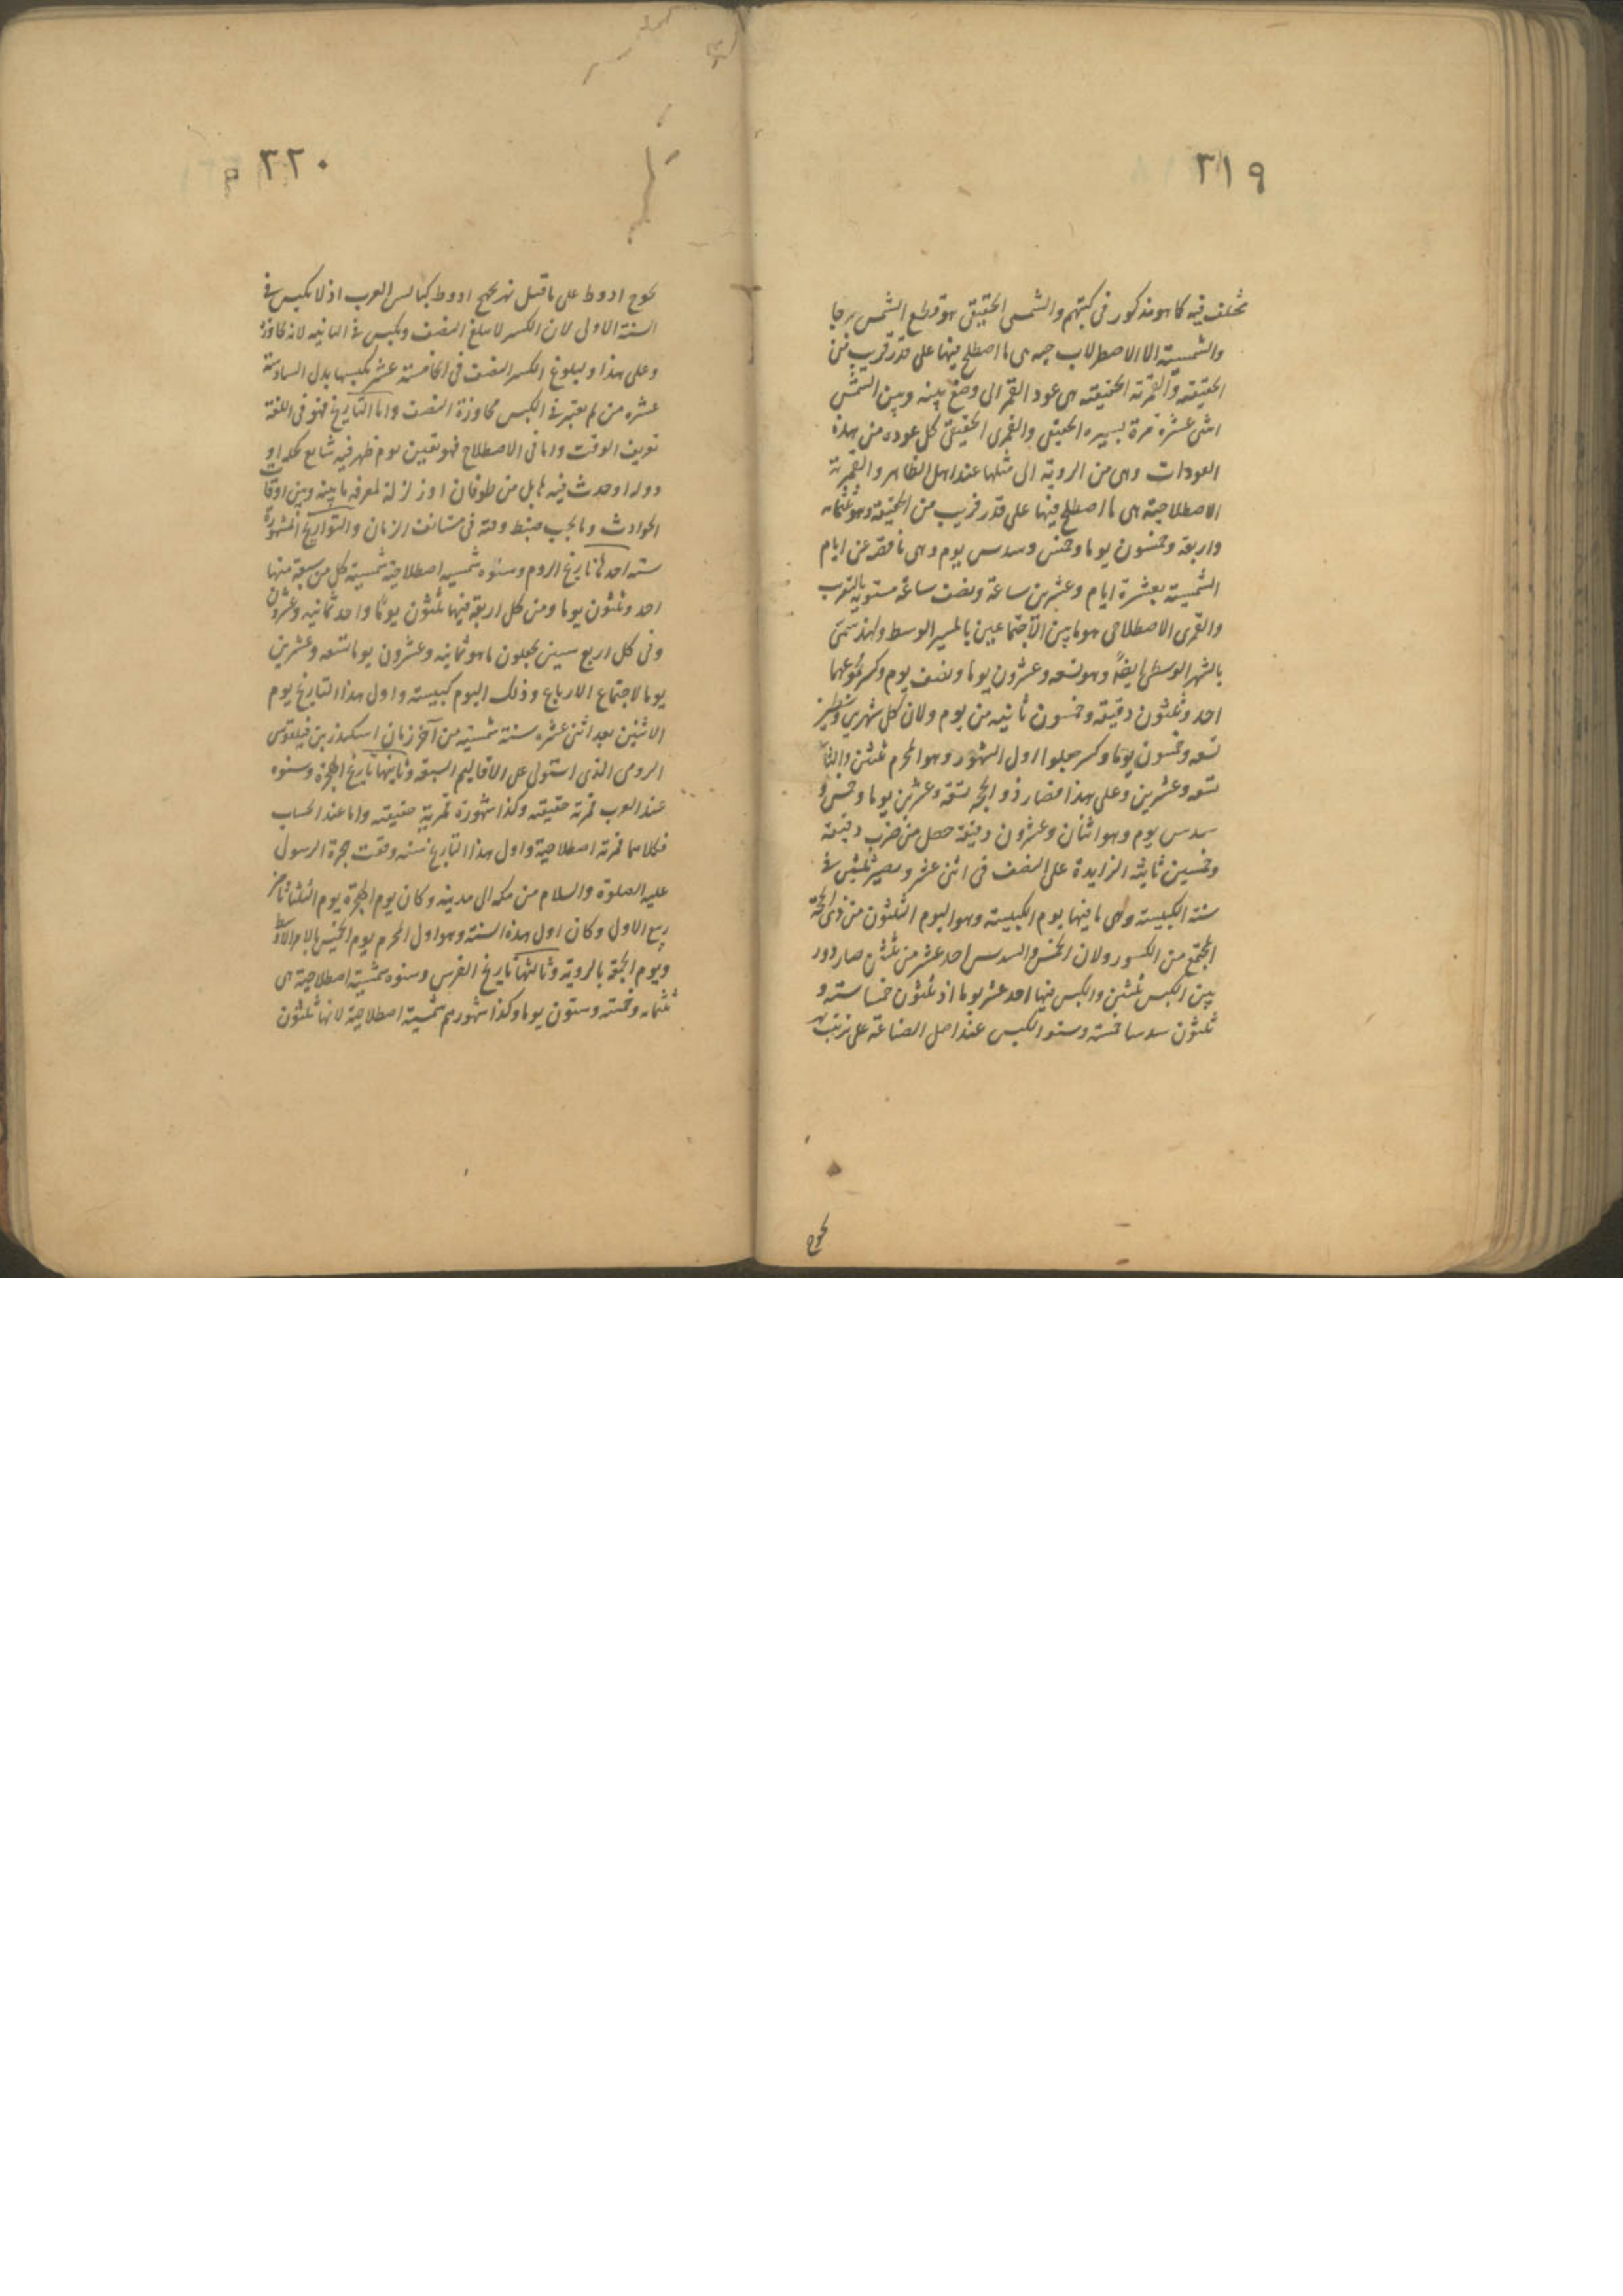 ٣١٩
مختلف فيه كما هو مذكور فى كتبهم والشمسى الحقيقى هو قطع الشمس برجا
والشمسية الاصطلاحية هى ما اصطلح فيها على قدر قريب من
الحقيقة والقمرية الحقيقية هى عود القمر الى وضع بينه وبين الشمس
اثنى عشرة مرة بسيره الحقيقى والقمرى الحقيقى كل عودة من هذه
العودات وهى من الروية الى مثلها عند اهل الظاهر والقمرية
الاصطلاحية هى ما اصطلح فيها على قدر قريب من الحقيقة وهو ثلثمائه
واربعة وخمسون يوما وخمس وسدس يوم وهى ناقصه عن ايام
الشمسية بعشرة ايام وعشرين ساعة ونصف ساعة مستوية بالتقريب
والقمرى الاصطلاحى هو ما بين الاجتماعين بالمسير الوسط ولهذا سمى
بالشهر الوسطى ايضا وهو تسعه وعشرون يوما ونصف يوم وكسر مجموعهما
احد وثلثون دقيقه وخمسون ثانيه من يوم ولان كل شهرين
تسعه وخمسون يوما وكسر جعلوا اول الشهور وهو المحرم ثلثين والثانى
تسعه وعشرين وعلى هذا فصار ذو الحجه تسعة وعشرين يوما وخمس و
سدس يوم وهو اثنان وعشرون دقيقة حصل من ضرب دقيقة
وخمسين ثانيه الزايدة على النصف فى اثنى عشر ويصير ثلثين فى
سنة الكبيسة وهى ما فيها يوم الكبيسة وهو اليوم الثلثون من ذى الحجة
المجتمع من الكسور ولان الخمس والسدس احد عشر من ثلثين صار دور
بين الكبس ثلثين والكبس فيها احد عشر يوما اذ ثلثون خمسا ستة و
ثلثون سدسا خمسة وسنو الكبس عند اهل الصناعة على ترتيب
٣٢٠
ادوط على ما قيل بهزيجوح ادوط كبائس العرب اذ لا يكبس فى
السنة الاولى لان الكسر لا يبلغ النصف ويكبس فى الثانيه لانه جاوزه
وعلى هذا ولبلوغ الكسر النصف فى الخامسة عشر يكبسها بدل السادسة
عشره من لم يعتبر فى الكبس مجاوزة النصف واما التاريخ فهو فى اللغة
تعريف الوقت واما فى الاصطلاح فهو تعيين يوم ظهر فيه شايع كملة او
دولة او حدث فيه هايل من طوفان او زلزلة لمعرفه ما بينه وبين اوقات
الحوادث وما يجب ضبط وقته فى مستانف الزمان والتواريخ المشهورة
ستة احدها تاريخ الروم وسنوه شمسيه اصطلاحية شمسية كل من سبعة منها
احد وثلثون يوما ومن كل اربعة فيها ثلثون يوما واحد ثمانيه وعشرون
وفى كل اربع سنين يجعلون ما هو ثمانيه وعشرون يوما تسعه وعشرين
يوما لاجتماع الارباع وذلك اليوم كبيسة واول هذا التاريخ يوم
الاثنين بعد اثنى عشره سنة شمسيه من آخر زمان اسكندر بن فيلقوس
الرومى الذى استولى على الاقاليم السبعه وثانيها تاريخ الهجرة وسنوه
عند العرب قمرية حقيقيه وكذا شهوره قمرية حقيقيه واما عند الحساب
فكلاهما قمرية اصطلاحية واول هذا التاريخ سنه وقعت هجرة الرسول
عليه الصلوة والسلام من مكه الى مدينه وكان يوم الهجرة يوم الثلثا ثامن
ربيع الاول وكان اول هذه السنة وهو اول المحرم يوم الخميس بالامر الاوسط
ويوم الجمعة بالروية وثالثها تاريخ الفرس وسنوه شمسية اصطلاحية هى
ثلثمائه وخمسة وستون يوما وكذا شهورهم شمسية اصطلاحية لانها ثلثون